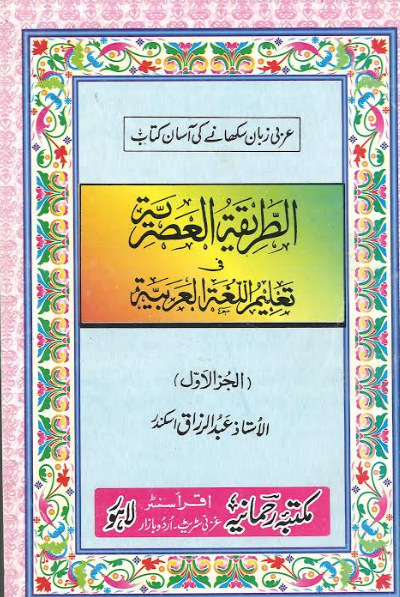 عربی زبان سکھانے کی آسان کتاب
الطريقة العصرية
فى
تعليم اللغة العربية
(الجزء الاوّل)
الاستاذ عبد الرزاق اسکندر
مکتبہ رحمانیہ اقرأ سنٹر لاہور
غزنی سٹریٹ۔ اردو بازار